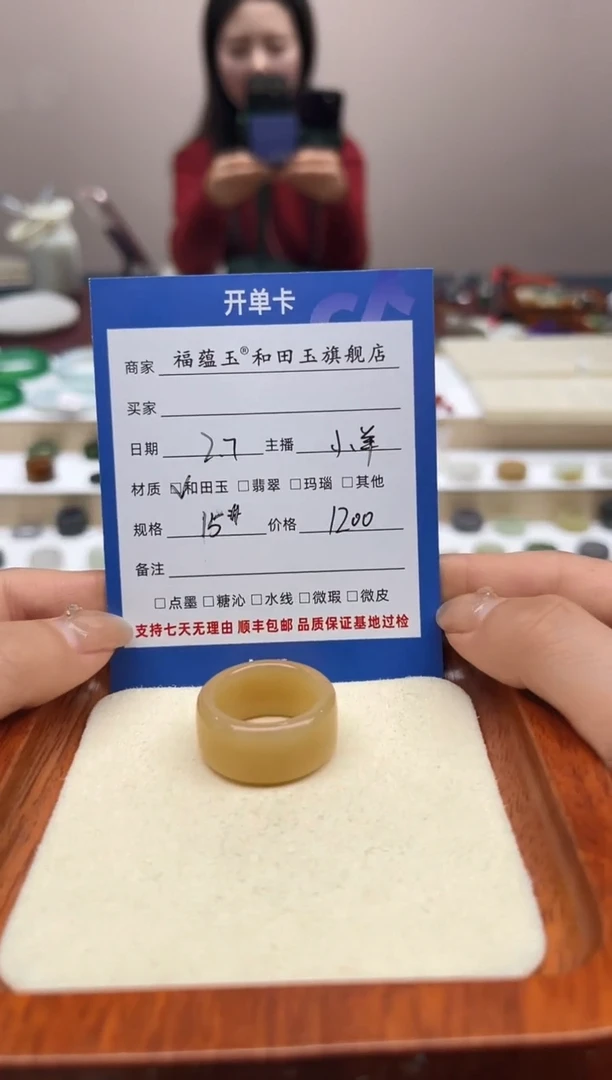 开单卡
商家 福蕴玉®和田玉旗舰店
买家
日期 2.7 主播 小羊
材质 ☑和田玉 □翡翠 □玛瑙 □其他
规格 15# 价格 1200
备注
□点墨 □糖沁 □水线 □微瑕 □微皮
支持七天无理由 顺丰包邮 品质保证基地过检